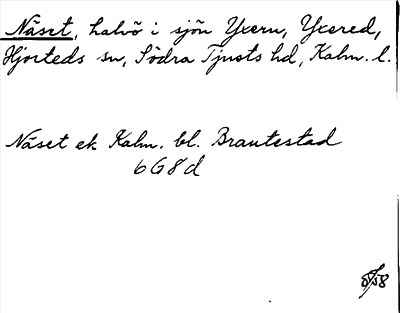 Näset, halvö i sjön Yxern, Yxered,
Hjorteds sn, Södra Tjusts hd, Kalm. l.
Näset ek Kalm. bl. Brantestad
6G8d